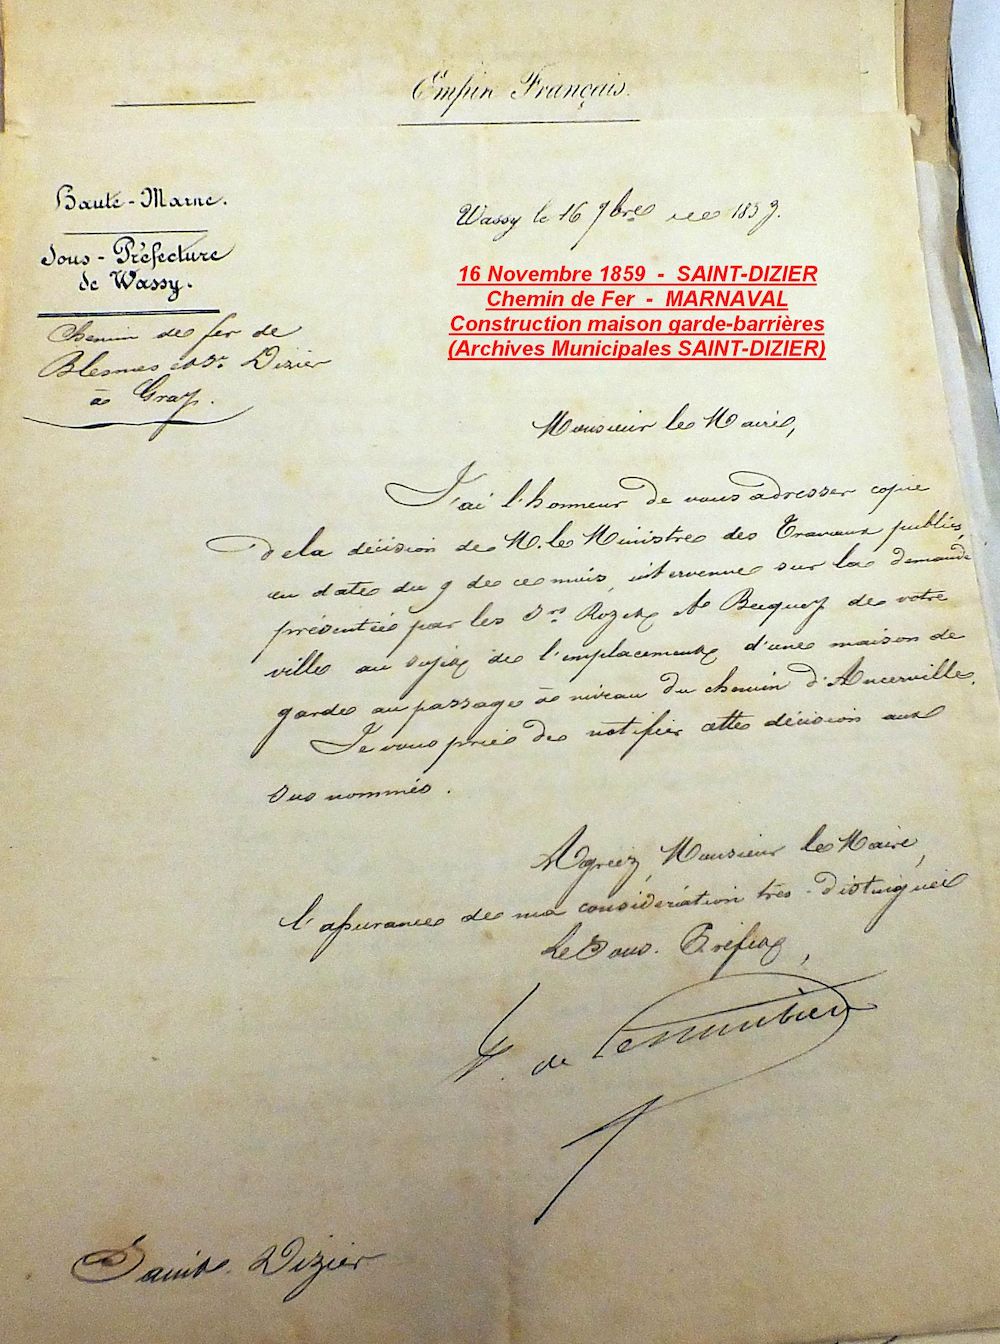 Empire Français.
Haute-Marne.
Sous-Préfecture
de Wassy.
Chemin de fer de
Blesmes et St Dizier
à Gray.
Wassy le 16 9bre 1859.
16 Novembre 1859 - SAINT-DIZIER
Chemin de Fer - MARNAVAL
Construction maison garde-barrières
(Archives Municipales SAINT-DIZIER)
Monsieur le Maire,
J'ai l'honneur de vous adresser copie
de la décision de M. le Ministre des Travaux publics,
en date du 9 de ce mois, intervenue sur la demande
présentée par les Srs Rozet et Becquey de votre
ville au sujet de l'emplacement d'une maison de
garde au passage à niveau du chemin d'Ancerville.
Je vous prie de notifier cette décision aux
sus nommés.
Agréez, Monsieur le Maire,
l'assurance de ma considération très-distinguée
Le Sous-Préfet,
de
Saint-Dizier